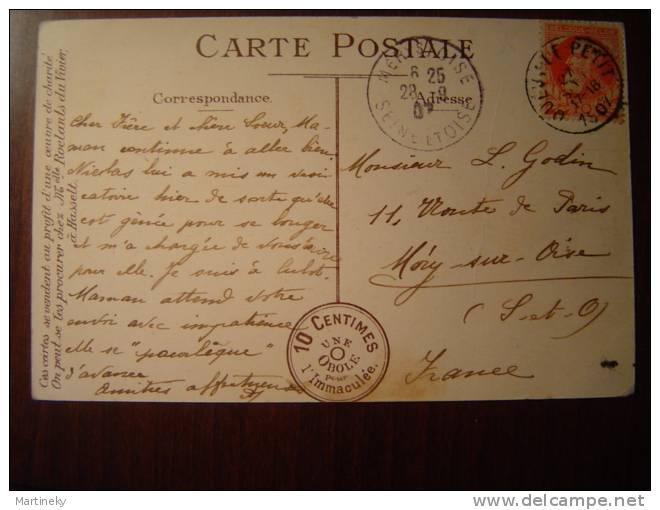 CARTE POSTALE
Correspondance.
Adresse
Ces cartes se vendent au profit d'une œuvre de charité
On peut se les procurer chez Melle Roelants du Vivier,
à Hasselt.
Cher Frère et chère Sœur, Ma-
man continue à aller bien.
Nicolas lui a mis un vesi-
catoire hier de sorte qu'elle
est gênée pour se bouger
et m'a chargée de vous
pour elle. Je suis à
Maman attend votre
envoi avec impatience
elle se
d'avance
Amitiés
Monsieur L. Godin
11, Route de Paris
Méry-sur-Oise
(S-et-O)
France
10 CENTIMES
UNE
OBOLE
pour
l'Immaculée.
MERY-S-OISE
6 25
28 -9
07
SEINE ET OISE
PETIT
1907
Martineky
delcampe.net